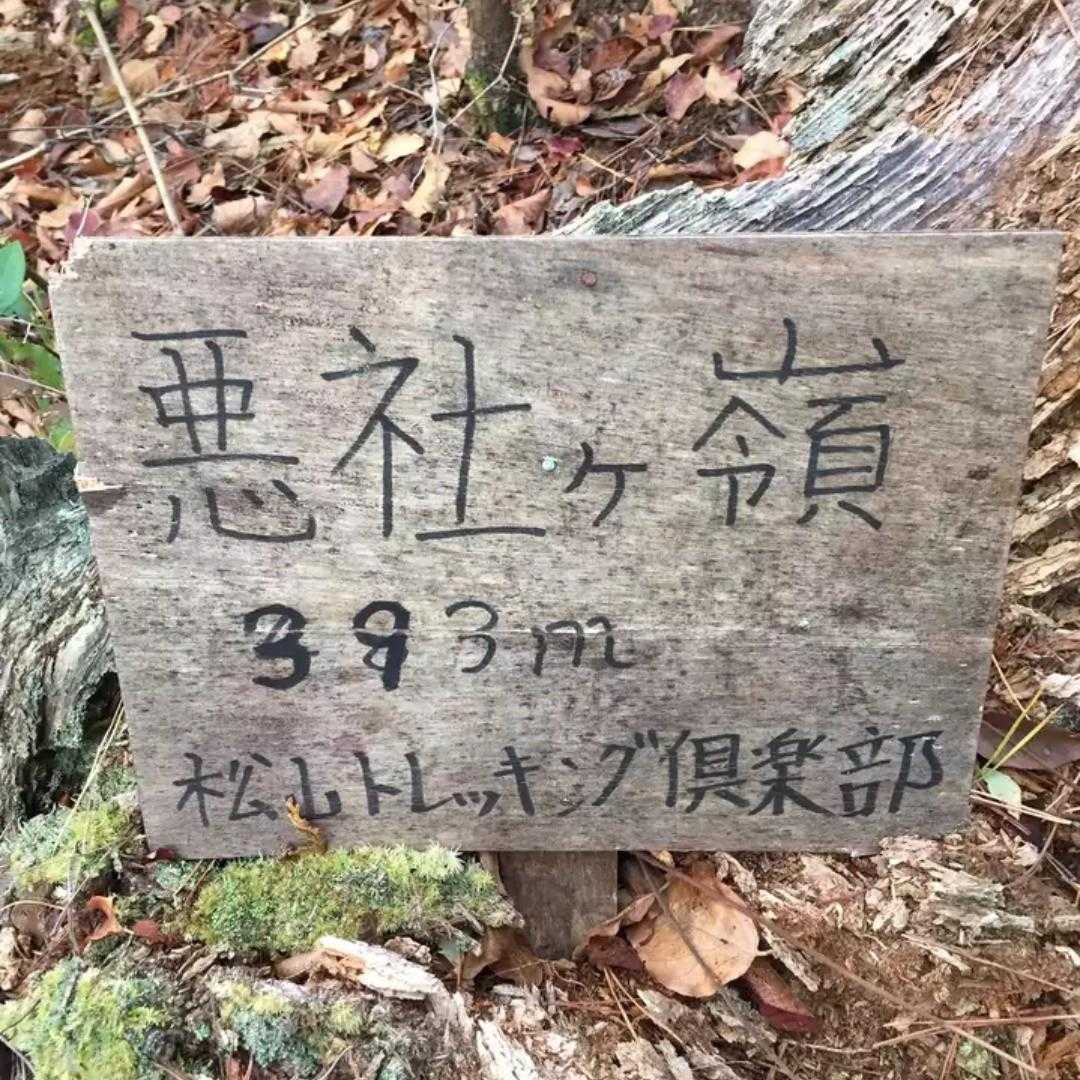 悪社ヶ嶺
393m
松山トレッキング倶楽部